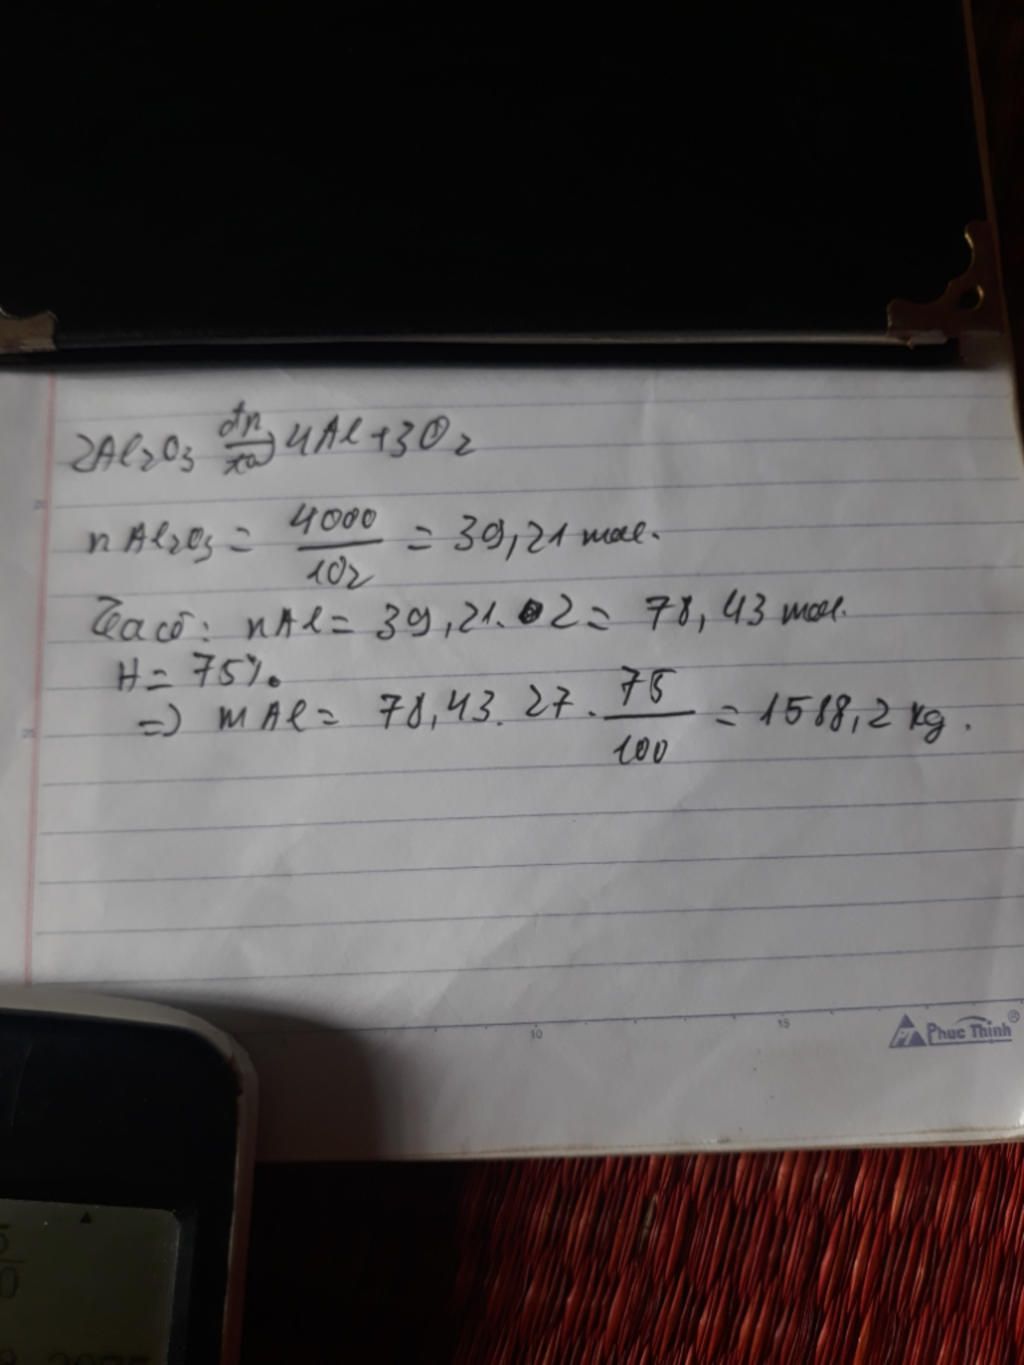 2Al2O3 đpnc→ 4Al + 3O2
nAl2O3 = 4000/102 = 39,21 mol.
Ta có: nAl = 39,21.2 = 78,43 mol.
H = 75%.
=> mAl = 78,43. 27. 75/100 = 1588,2 kg.
10 15
Phuc Thinh®